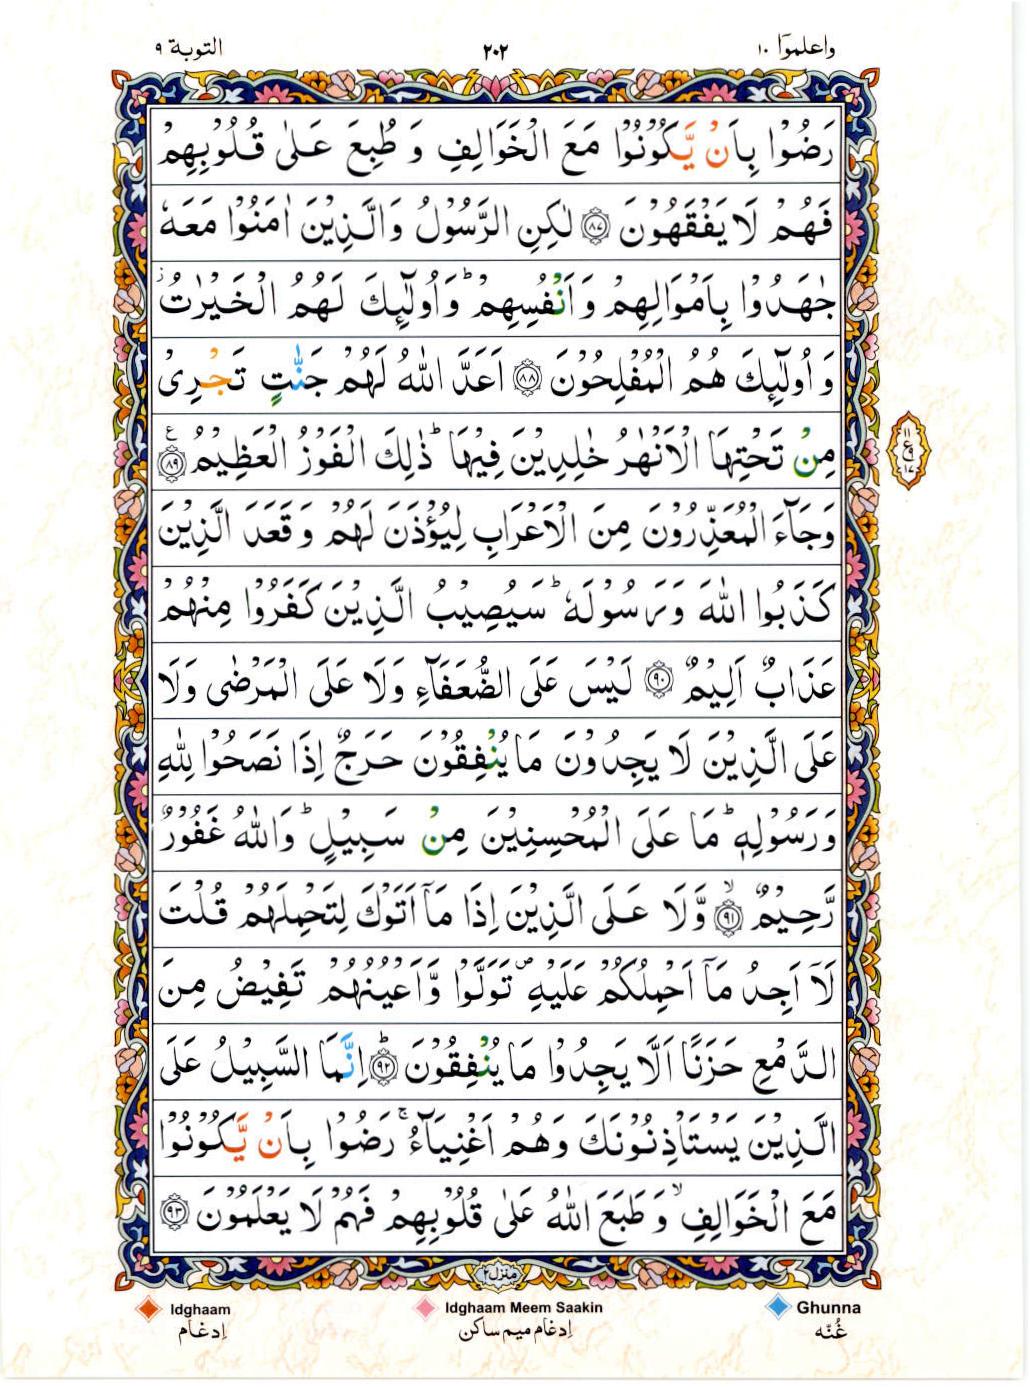 واعلموۤا ١٠
٢٠٢
التوبة ٩
رَضُوْا بِاَنْ يَّكُوْنُوْا مَعَ الْخَوَالِفِ وَ طُبِعَ عَلٰى قُلُوْبِهِمْ
فَهُمْ لَا يَفْقَهُوْنَ ۝٨٧ لٰكِنِ الرَّسُوْلُ وَالَّذِيْنَ اٰمَنُوْا مَعَهٗ
جٰهَدُوْا بِاَمْوَالِهِمْ وَاَنْفُسِهِمْؕ وَاُولٰٓئِكَ لَهُمُ الْخَيْرٰتُ ز
وَاُولٰٓئِكَ هُمُ الْمُفْلِحُوْنَ ۝٨٨ اَعَدَّ اللّٰهُ لَهُمْ جَنّٰتٍ تَجْرِىْ
مِنْ تَحْتِهَا الْاَنْهٰرُ خٰلِدِيْنَ فِيْهَاؕ ذٰلِكَ الْفَوْزُ الْعَظِيْمُ ۝٨٩ ع
١١
ع
١٧
وَجَآءَ الْمُعَذِّرُوْنَ مِنَ الْاَعْرَابِ لِيُؤْذَنَ لَهُمْ وَقَعَدَ الَّذِيْنَ
كَذَبُوا اللّٰهَ وَرَسُوْلَهٗؕ سَيُصِيْبُ الَّذِيْنَ كَفَرُوْا مِنْهُمْ
عَذَابٌ اَلِيْمٌ ۝٩٠ لَيْسَ عَلَى الضُّعَفَآءِ وَلَا عَلَى الْمَرْضٰى وَلَا
عَلَى الَّذِيْنَ لَا يَجِدُوْنَ مَا يُنْفِقُوْنَ حَرَجٌ اِذَا نَصَحُوْا لِلّٰهِ
وَرَسُوْلِهٖؕ مَا عَلَى الْمُحْسِنِيْنَ مِنْ سَبِيْلٍؕ وَاللّٰهُ غَفُوْرٌ
رَّحِيْمٌ ۙ۝٩١ وَّلَا عَلَى الَّذِيْنَ اِذَا مَاۤ اَتَوْكَ لِتَحْمِلَهُمْ قُلْتَ
لَاۤ اَجِدُ مَاۤ اَحْمِلُكُمْ عَلَيْهِ ص تَوَلَّوْا وَّاَعْيُنُهُمْ تَفِيْضُ مِنَ
الدَّمْعِ حَزَنًا اَلَّا يَجِدُوْا مَا يُنْفِقُوْنَ ؕ۝٩٢ اِنَّمَا السَّبِيْلُ عَلَى
الَّذِيْنَ يَسْتَاْذِنُوْنَكَ وَهُمْ اَغْنِيَآءُۚ رَضُوْا بِاَنْ يَّكُوْنُوْا
مَعَ الْخَوَالِفِۙ وَطَبَعَ اللّٰهُ عَلٰى قُلُوْبِهِمْ فَهُمْ لَا يَعْلَمُوْنَ ۝٩٣
منزل ٢
Idghaam
Idghaam Meem Saakin
Ghunna
إدغام
إدغام ميم ساكن
غُنّه